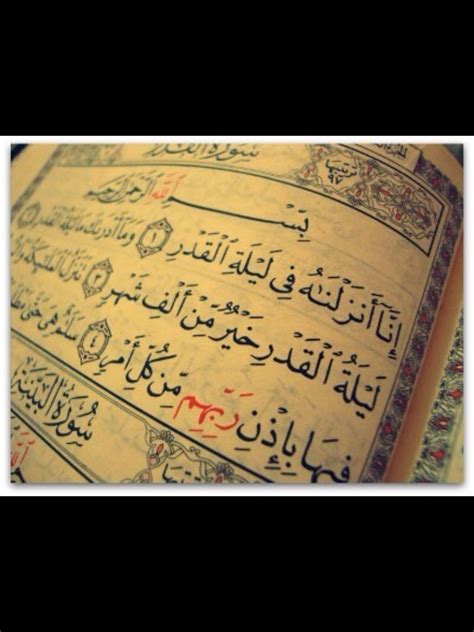 سُورَةُ القَدْرِ
تَرتيبُهَا ٩٧
بِسْمِ ٱللَّهِ ٱلرَّحْمَٰنِ ٱلرَّحِيمِ
إِنَّآ أَنزَلْنَٰهُ فِى لَيْلَةِ ٱلْقَدْرِ ١ وَمَآ أَدْرَىٰكَ مَا لَيْلَةُ ٱلْقَدْرِ ٢
لَيْلَةُ ٱلْقَدْرِ خَيْرٌ مِّنْ أَلْفِ شَهْرٍ ٣ تَنَزَّلُ ٱلْمَلَٰٓئِكَةُ
فِيهَا بِإِذْنِ رَبِّهِم مِّن كُلِّ أَمْرٍ ٤ سَلَٰمٌ هِىَ حَتَّىٰ
سُورَةُ البَيِّنَةِ